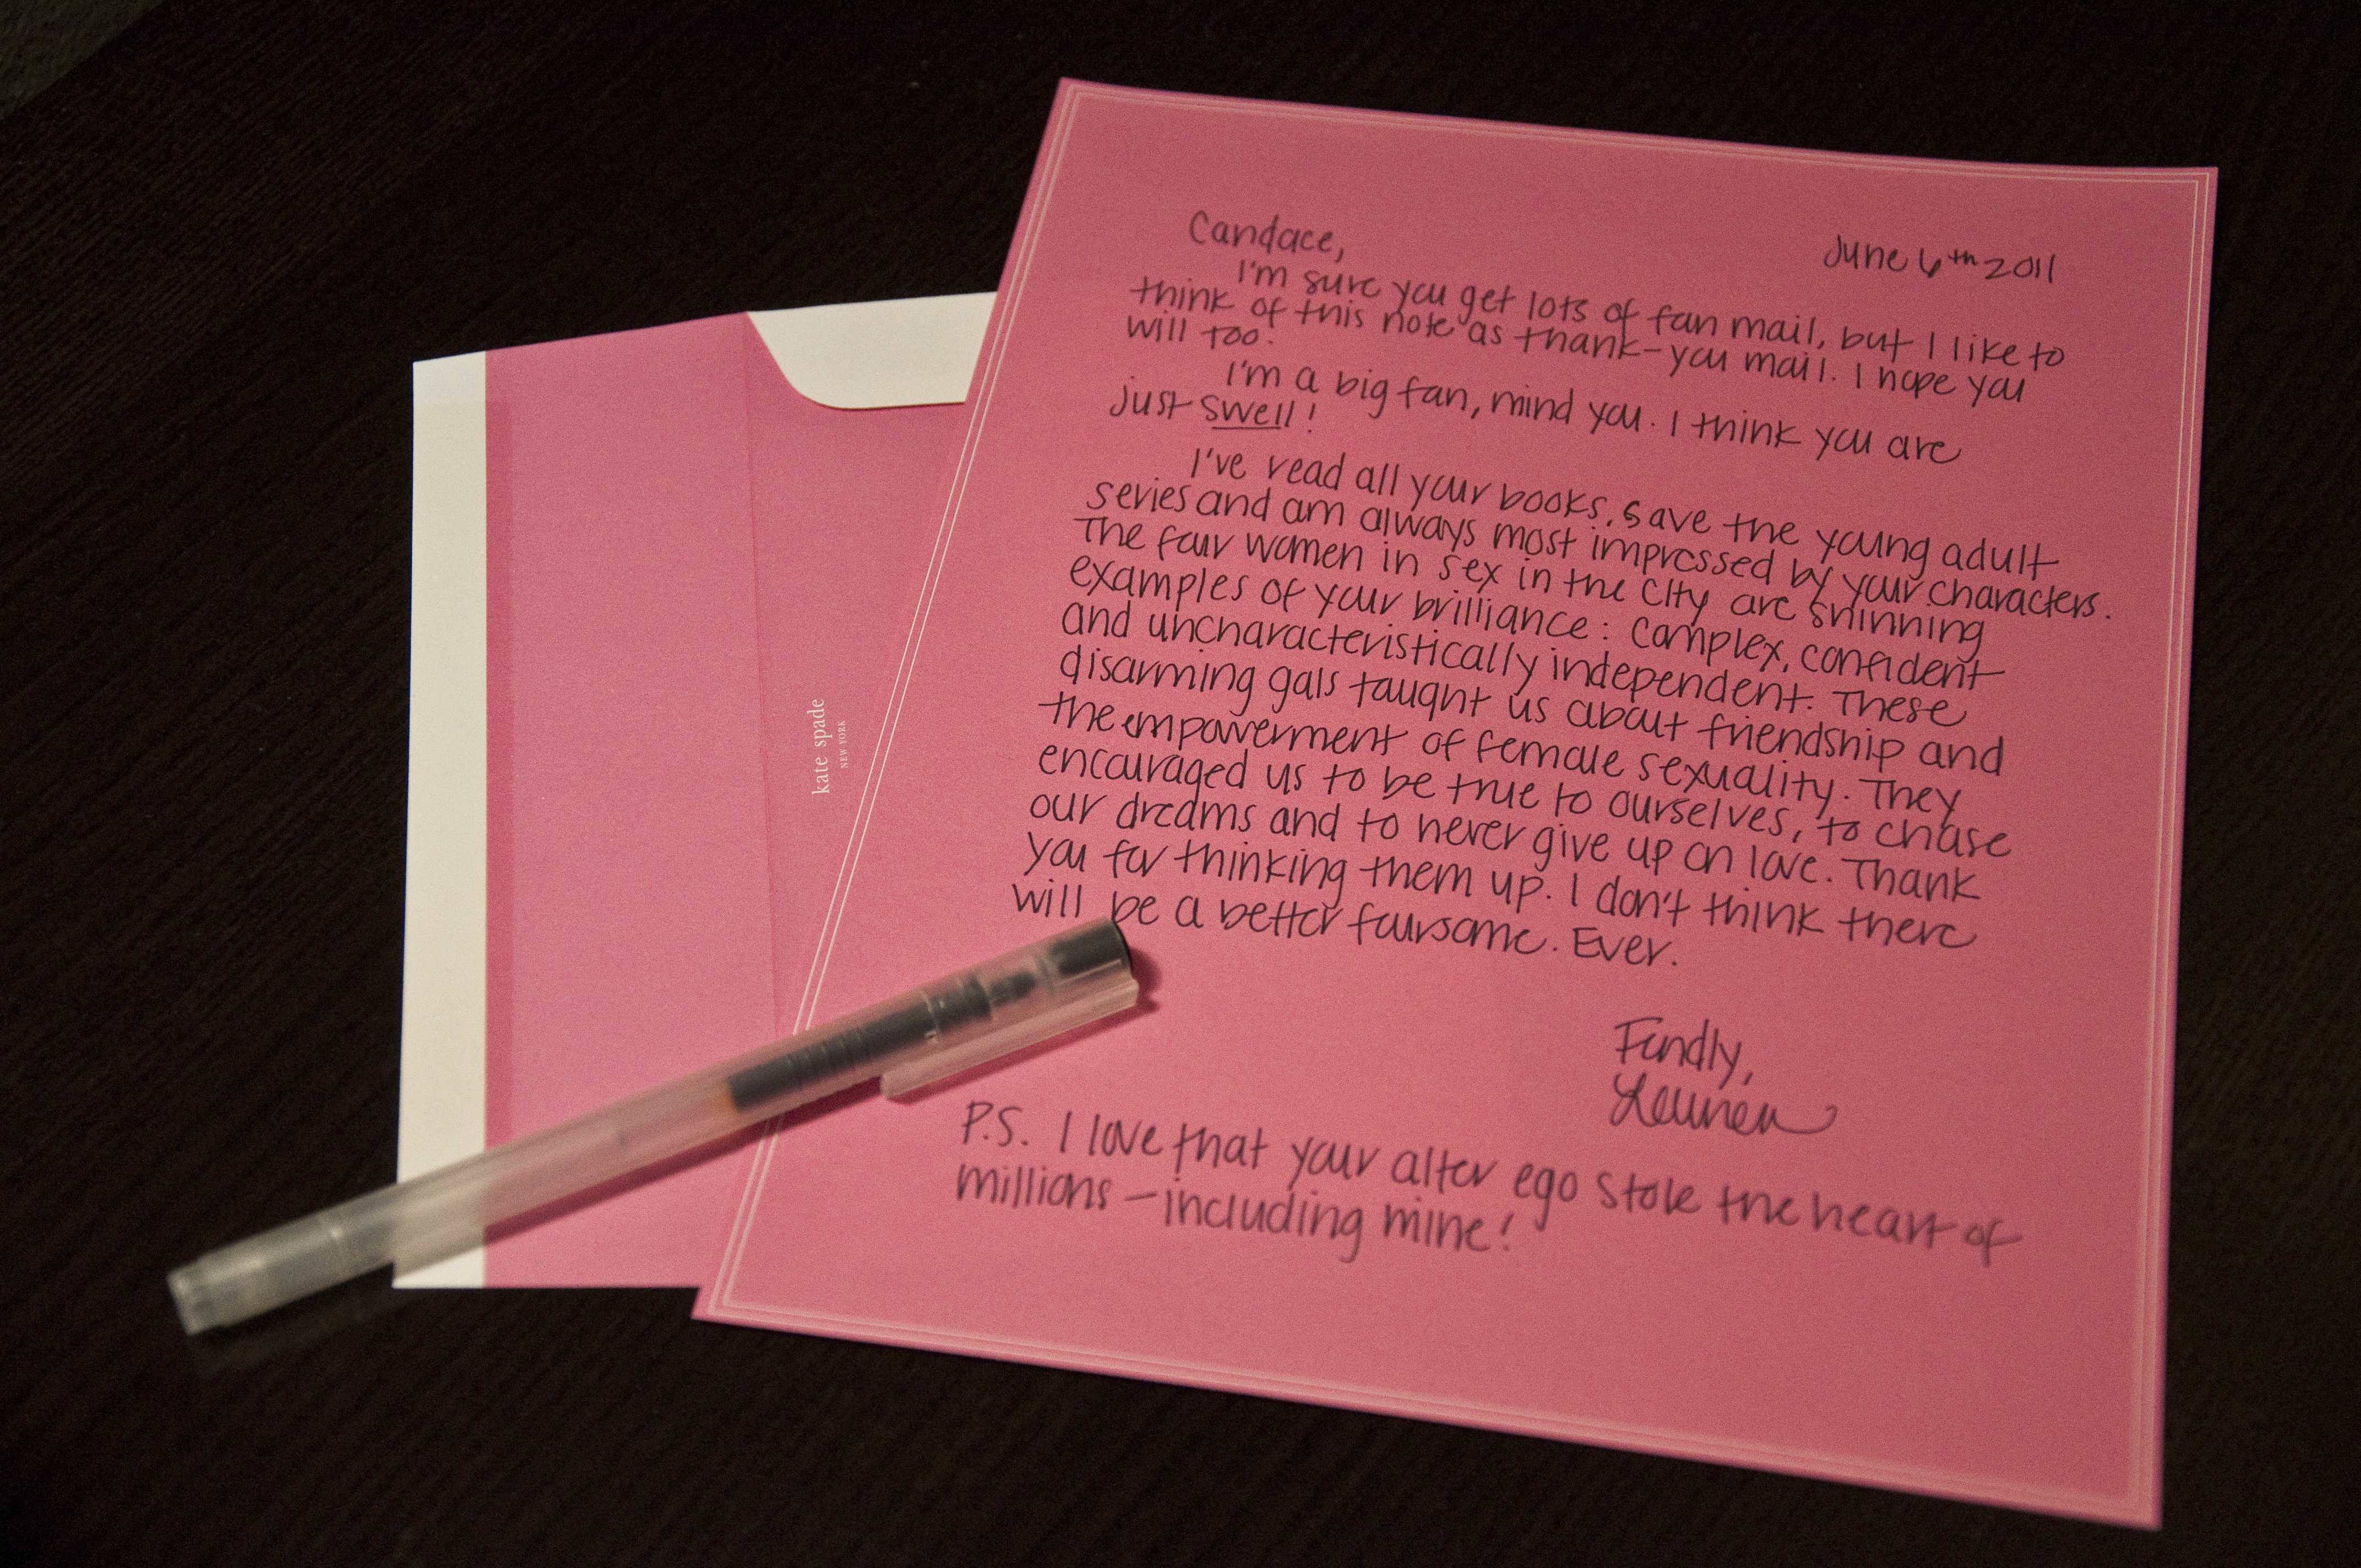 June 6th 2011
Candace,
I'm sure you get lots of fan mail, but I like to
think of this note as thank-you mail. I hope you
will too.
I'm a big fan, mind you. I think you are
just swell!
I've read all your books, save the young adult
series and am always most impressed by your characters.
The four women in Sex in the City are shinning
examples of your brilliance: complex, confident
and uncharacteristically independent. These
disarming gals taught us about friendship and
the empowerment of female sexuality. They
encouraged us to be true to ourselves, to chase
our dreams and to never give up on love. Thank
you for thinking them up. I don't think there
will be a better foursome. Ever.
Fondly,
Lauren
P.S. I love that your alter ego stole the heart of
millions – including mine!
kate spade
NEW YORK